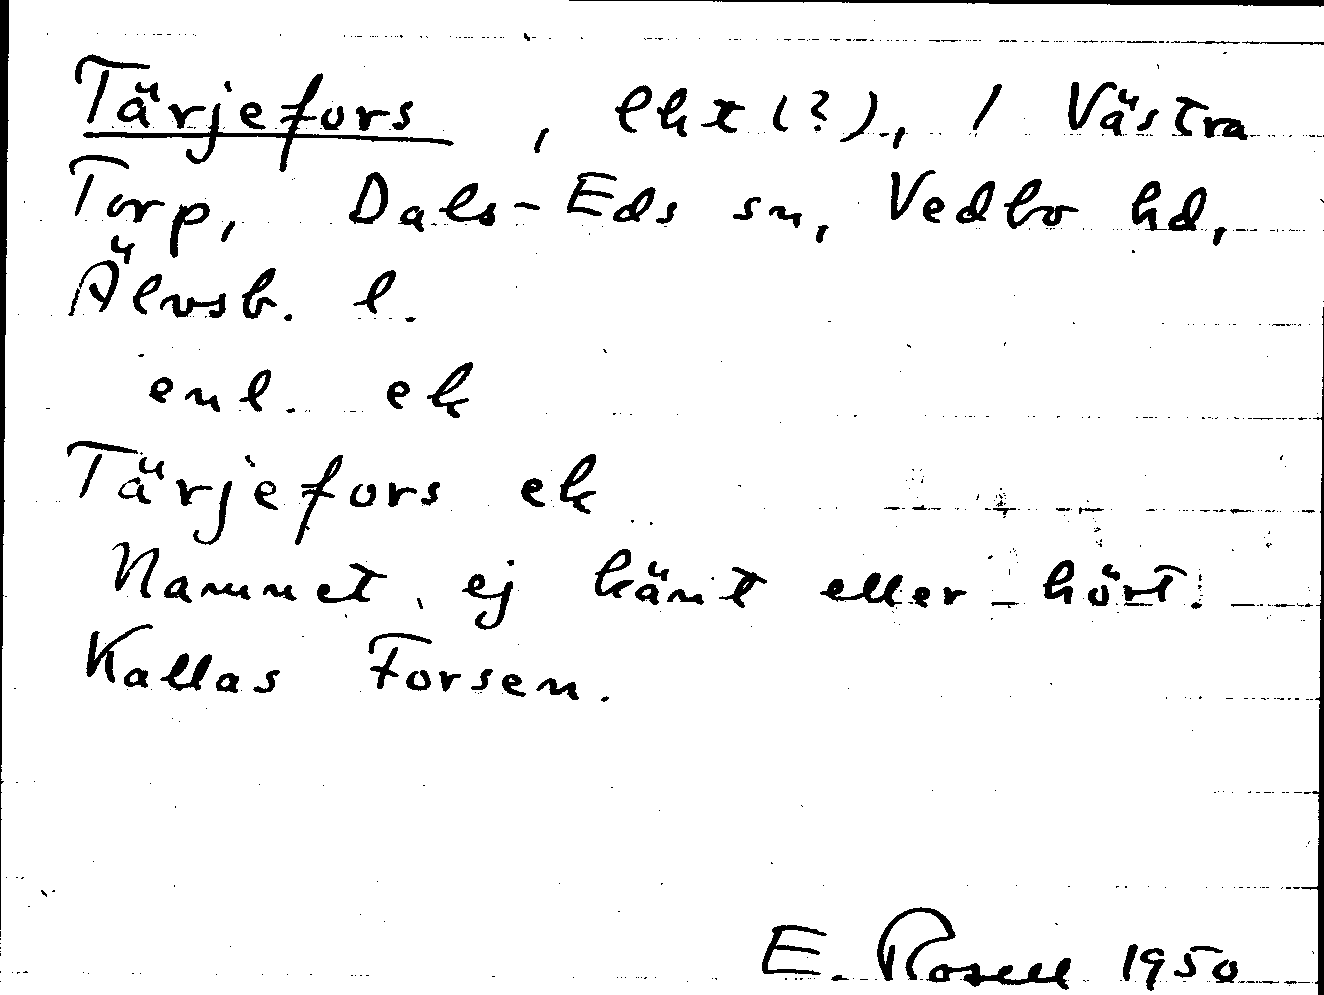 Tärjefors, lht (?), / Västra
Torp, Dals-Eds sn, Vedbo hd,
Älvsb. l.
enl. ek
Tärjefors ek
Namnet ej känt eller hört.
Kallas Forsen.
E. Rosell 1950